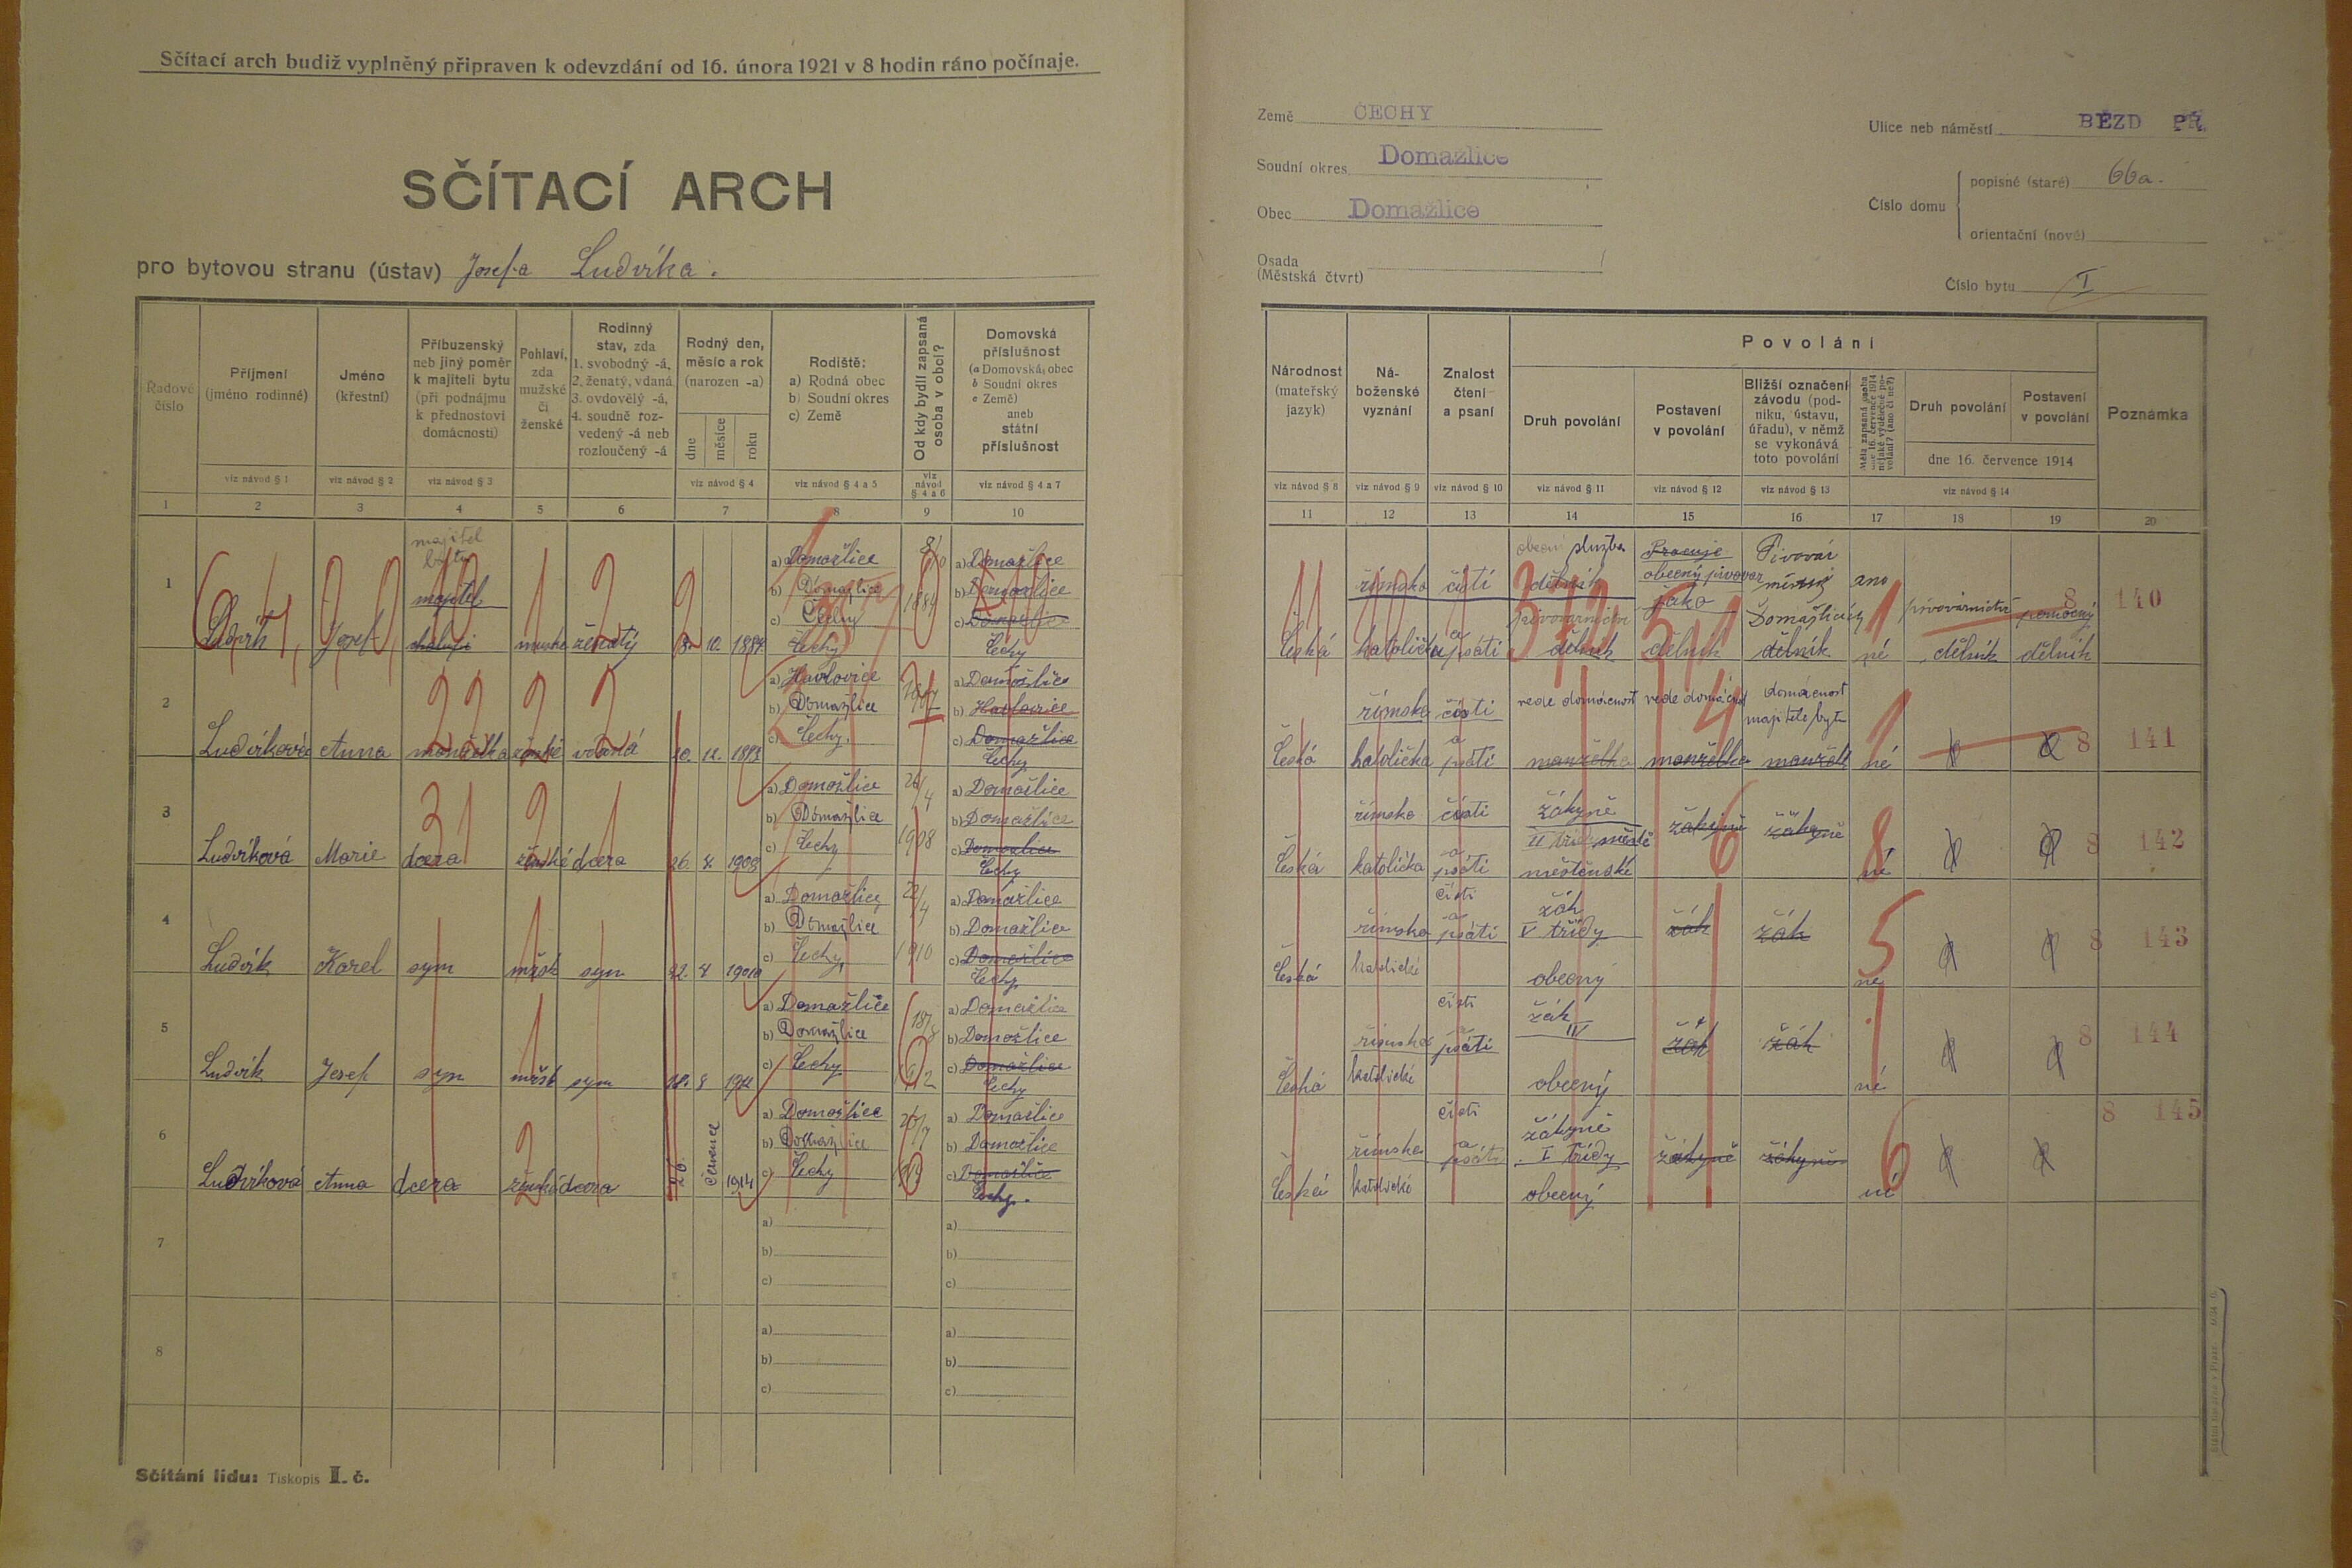 Sčítací arch budiž vyplněný připraven k odevzdání od 16. února 1921 v 8 hodin ráno počínaje.
SČÍTACÍ ARCH
pro bytovou stranu (ústav) Josefa Ludvíka.
Řadové číslo
Příjmení (jméno rodinné)
Jméno (křestní)
Příbuzenský neb jiný poměr k majiteli bytu (při podnájmu k přednostovi domácnosti)
Pohlaví, zda mužské či ženské
Rodinný stav, zda 1. svobodný -á, 2. ženatý, vdaná, 3. ovdovělý -á, 4. soudně rozvedený -á neb rozloučený -á
Rodný den, měsíc a rok (narozen -a)
dne měsíce roku
Rodiště: a) Rodná obec b) Soudní okres c) Země
Od kdy bydlí zapsaná osoba v obci?
Domovská příslušnost (a Domovská obec b Soudní okres c Země) aneb státní příslušnost
viz návod § 1 viz návod § 2 viz návod § 3 viz návod § 4 viz návod § 4 a 5 viz návod § 4 a 6 viz návod § 4 a 7
1 2 3 4 5 6 7 8 9 10
1 Ludvík Josef majitel bytu ženatý 8. 10. 1884
a) Domažlice b) Domažlice c) Čechy
1884
a) Domažlice b) Domažlice c) Domažlice Čechy
2 Ludvíková Anna manželka ženské vdaná 20. 12.
a) Havlovice b) Domažlice c) Čechy.
a) Domažlice b) Havlovice c) Domažlice Čechy
3 Ludvíková Marie dcera ženské dcera 26. 4. 1908
a) Domažlice b) Domažlice c) Čechy
26/4 1908
a) Domažlice b) Domažlice c) Domažlice Čechy
4 Ludvík Karel syn mužsk syn 22. 4 1910
a) Domažlice b) Domažlice c) Čechy
22/4 1910
a) Domažlice b) Domažlice c) Domažlice Čechy
5 Ludvík Josef syn mužsk syn 18. 8
a) Domažlice b) Domažlice c) Čechy
18/8 1912
a) Domažlice b) Domažlice c) Domažlice Čechy
6 Ludvíková Anna dcera ženská dcera 26. července 1914
a) Domažlice b) Domažlice c) Čechy
26/7
a) Domažlice b) Domažlice c) Domažlice Čechy.
7 a) b) c) a) b) c)
8 a) b) c) a) b) c)
Sčítání lidu: Tiskopis I. č.
Země ČECHY
Soudní okres Domažlice
Obec Domažlice
Osada (Městská čtvrt)
Ulice neb náměstí BĚZD PŘ.
Číslo domu
popisné (staré) 66a.
orientační (nové)
Číslo bytu I
Národnost (mateřský jazyk)
Náboženské vyznání
Znalost čtení a psaní
Povolání
Druh povolání
Postavení v povolání
Bližší označení závodu (podniku, ústavu, úřadu), v němž se vykonává toto povolání
Měla zapsaná osoba dne 16. července 1914 nějaké výdělečné povolání? (ano či ne?)
Druh povolání
Postavení v povolání
dne 16. července 1914
Poznámka
viz návod § 8 viz návod § 9 viz návod § 10 viz návod § 11 viz návod § 12 viz návod § 13 viz návod § 14
11 12 13 14 15 16 17 18 19 20
Česká římsko katolička čísti a psáti dělník pivovarnictví dělník
Pracuje obecný pivovar jako dělník
Pivovar Domažlicích dělník
ano né pivovarnictví dělník pomocný dělník 8 140
Česká římsko katolička čísti a psáti vede domácnost manželka
vede domácnost manželka
domácnost majitele bytu
né 8 141
Česká římsko katolička čísti a psáti žákyně II měšťanské žákyně žákyně né 8 142
Česká římsko katolické čísti a psáti žák V třídy obecný žák žák né 8 143
Česká římsko katolické čísti a psáti žák IV obecný žák žák né 8 144
Česká římsko katolické čísti a psáti žákyně I třídy obecný žákyně žákyně né 8 145